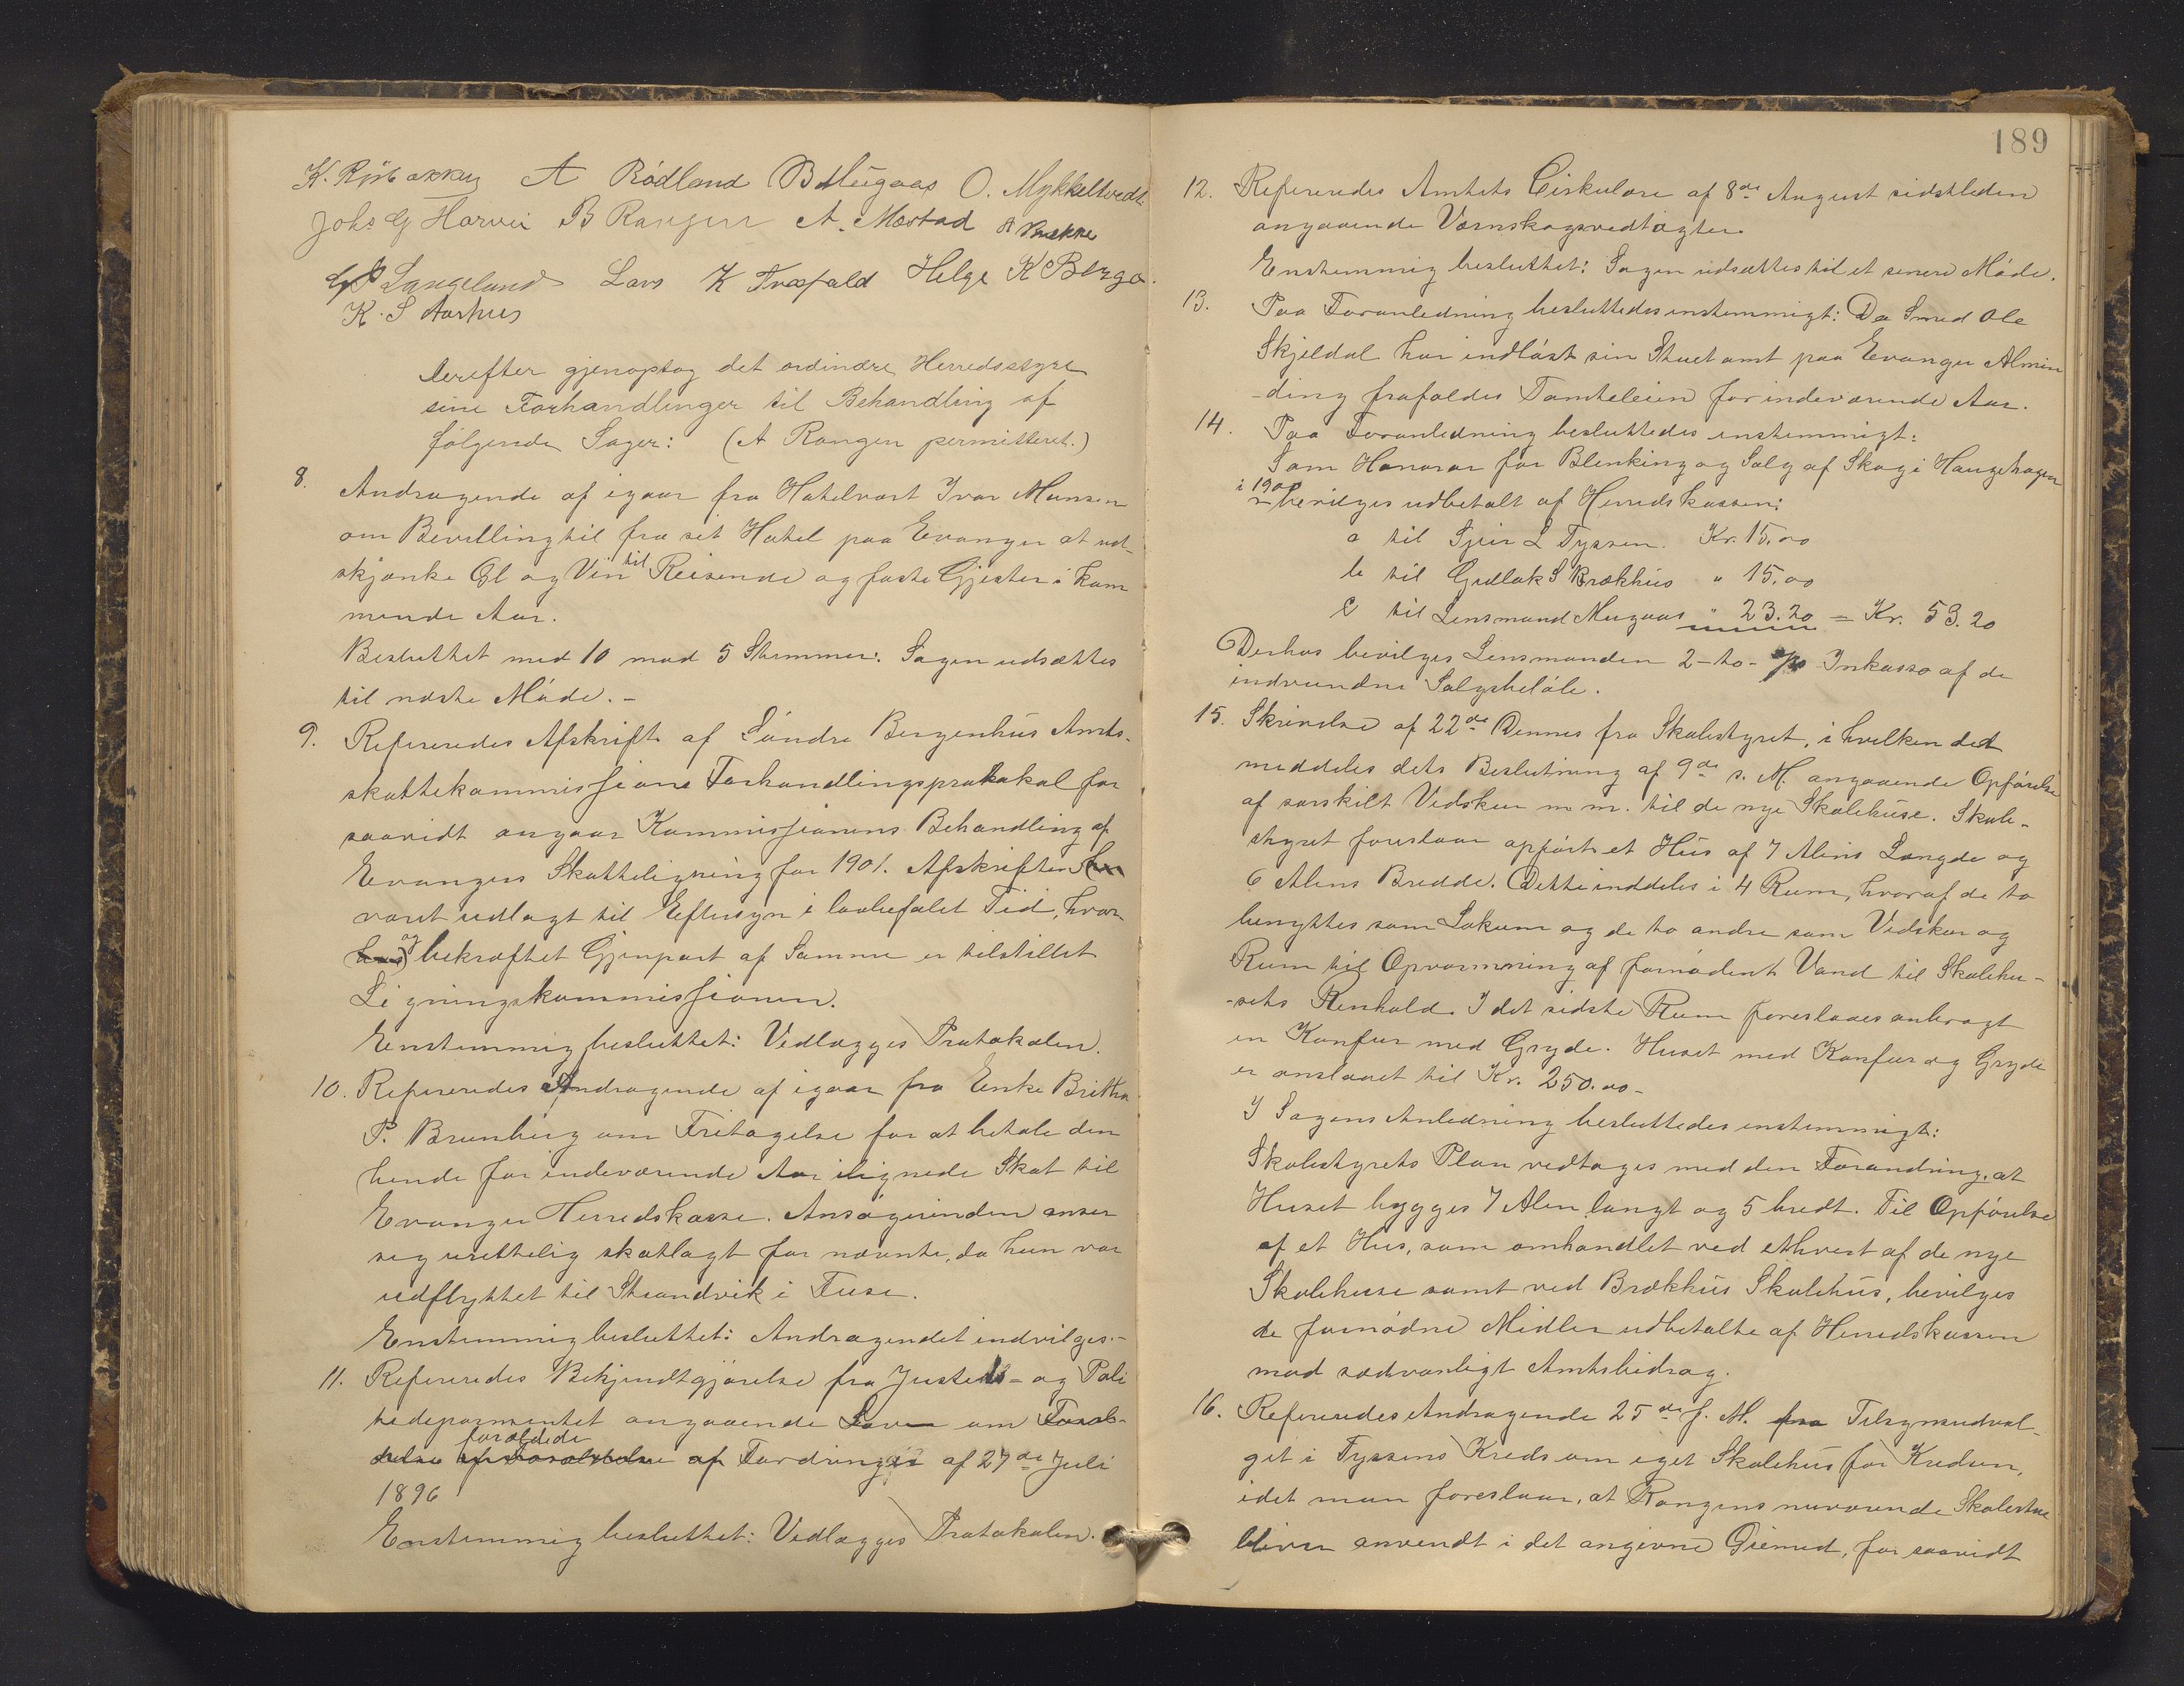 A Rødland B Mugaas O. Mykkeltvedt
Johs G Horvei B Rangen A. Mæstad A Brække
Langeland Lars K Træfald Helge K Berge.
K. S Aarhus
Derefter gjenoptog det ordinære Herredsstyre
sine Forhandlinger til Behandling af
følgende Sager: (A Rangen permitteret.)
8. Andragende af igaar fra Hotelvært Ivar Monsen
om Bevilling til fra sit Hotel paa Evanger at ud-
skjænke Øl og Vin til Reisende og faste Gjester i kom
mende Aar.
Besluttet med 10 mod 5 Stemmer: Sagen udsættes
til næste Møde. -
9. Refereredes Afskrift af Søndre Bergenhus Amts-
skattekommissions Forhandlingsprotokol for
saavidt angaar Kommissionens Behandling af
Evangers Skatteligning for 1901. Afskriften har
været udlagt til Eftersyn i lovbefalet Tid, hvor
og bekræftet Gjenpart af Samme er tilstillet
Ligningskommissionen.
Enstemmig besluttet: Vedlægges Protokolen.
10. Refereredes Andragende af igaar fra Enke Britha
P. Brunborg om Fritagelse for at betale den
hende for indeværende Aar ilignede Skat til
Evanger Herredskasse. Ansøgerinden anser
seg urettelig skatlagt for nævnte, da hun var
udflyttet til Strandvik i Fuse.
Enstemmig besluttet: Andragendet indvilges.-
11. Refereredes Bekjendtgjørelse fra Justits- og Poli
tidepartementet angaaende Loven om Foræl-
delse forældede af Fordringer af 27de Juli
1896
Enstemmig besluttet: Vedlægges Protokolen.
189
12. Refereredes Amtets Cirkulære af 8de August sidstleden
angaaende Værnskogsvedtægter.
Enstemmig besluttet: Sagen udsættes til et senere Møde.
13. Paa Foranledning besluttedes enstemmigt: Da Smed Ole
Skjeldal har indløst sin Stuetomt paa Evanger Almin
-ding frafaldes Tomteleien for indeværende Aar.
14. Paa Foranledning besluttedes enstemmigt:
Som Honorar for Blenking og Salg af Skog i Haugehagen
i 190
bevilges udbetalt af Herredskassen:
a til Sjur L Fyssen. Kr. 15.00
b til Gullak S Brækhus " 15.00
c til Lensmand Mugaas " 23.20 = Kr. 53.20
Derhos bevilges Lensmanden 2-to-% Inkasso af de
indvundne Salgsbeløb.
15. Skrivelse af 22de Dennes fra Skolestyret, i hvilken det
meddeles dets Beslutning af 9de s. M. angaaende Opførelse
af særskilt Vedskur m m. til de nye Skolehuse. Skole-
styret foreslaar opført et Hus af 7 Alens Længde og
6 Alens Bredde. Dette inddeles i 4 Rum, hvoraf de to
benyttes som Lokum og de to andre som Vedskur og
Rum til Opvarmning af fornødent Vand til Skolehu-
-sets Renhold. I det sidste Rum foreslaaes anbragt
en Komfur med Gryde. Huset med Komfur og Gryde
er anslaaet til Kr. 250.00-
I Sagens Anledning besluttedes enstemmigt:
Skolestyrets Plan vedtages med den Forandring, at
Huset bygges 7 Alen langt og 5 bredt. Til Opførelse
af et Hus, som omhandlet ved ethvert af de nye
Skolehuse samt ved Brækhus Skolehus, bevilges
de fornødne Midler udbetalte af Herredskassen
mod sædvanligt Amtsbidrag.
16. Refereredes Andragende 25de f. M. fra Tilsynsudval-
get i Fyssens Kreds om eget Skolehus for Kredsen,
idet man foreslaar, at Rangens nuværende Skolestue
bliver anvendt i det angivne Øiemed, for saavidt